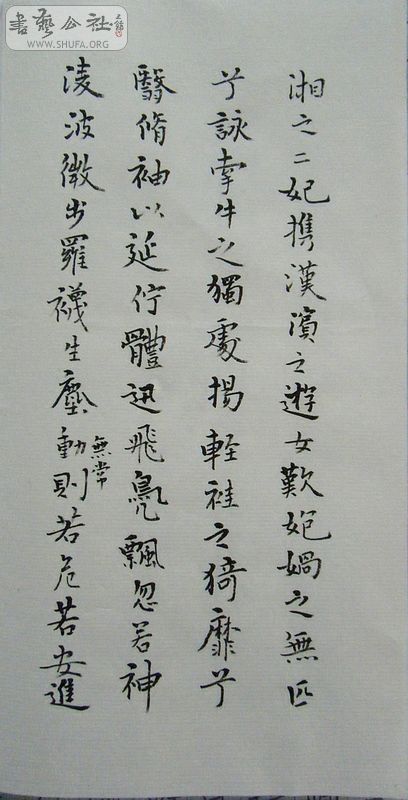 書藝公社
WWW.SHUFA.ORG
湘之二妃攜漢濱之遊女歎匏媧之無匹
兮詠牽牛之獨處揚輕袿之猗靡兮
翳脩袖以延佇體迅飛鳧飄忽若神
淩波微步羅襪生塵動則若危若安進
無常